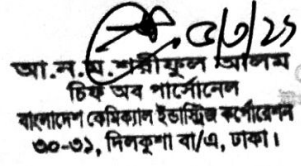 ৫/৩/২১
আ.ন.ম.শরীফুল আলম
চিফ অব পার্সোনেল
বাংলাদেশ কেমিক্যাল ইন্ডাস্ট্রিজ কর্পোরেশন
৩০-৩১, দিলকুশা বা/এ, ঢাকা।